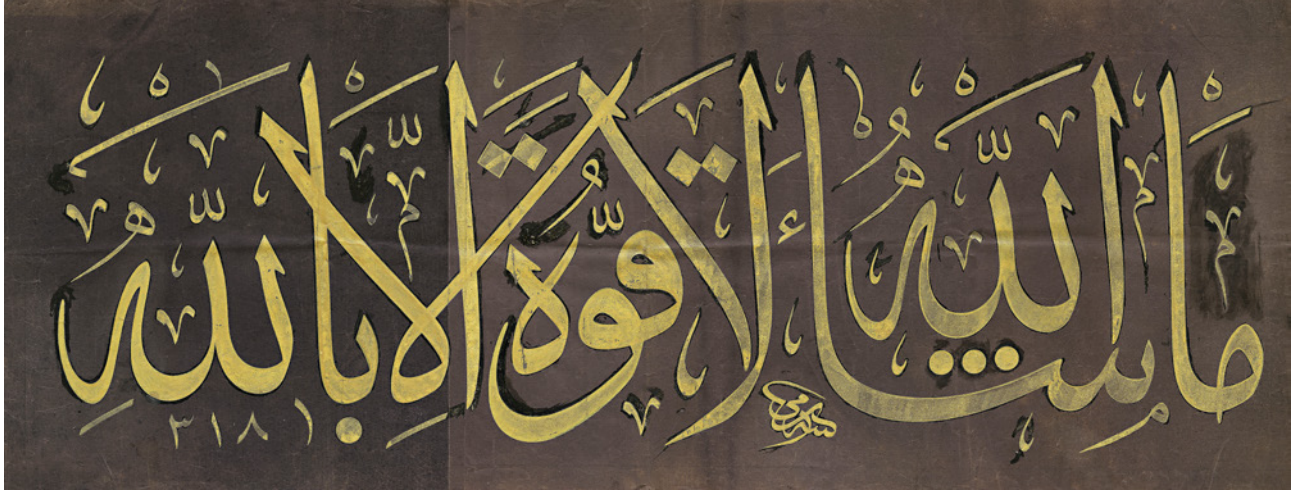 مَا شَاءَ اللّٰهُ لَا قُوَّةَ اِلَّا بِاللّٰهِ
٣١٨١